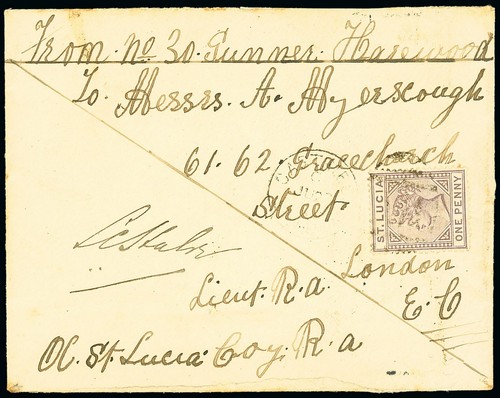 From. No 30. Gunner. Harewood
To. Messrs. A. Myerscough
61. 62. Gracechurch.
Street
London
E. C
Lieut. R. a
OC. St. Lucia. Coy. R. a
ST. LUCIA
ONE PENNY